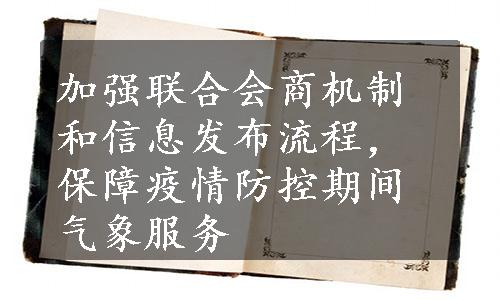 加强联合会商机制
和信息发布流程，
保障疫情防控期间
气象服务